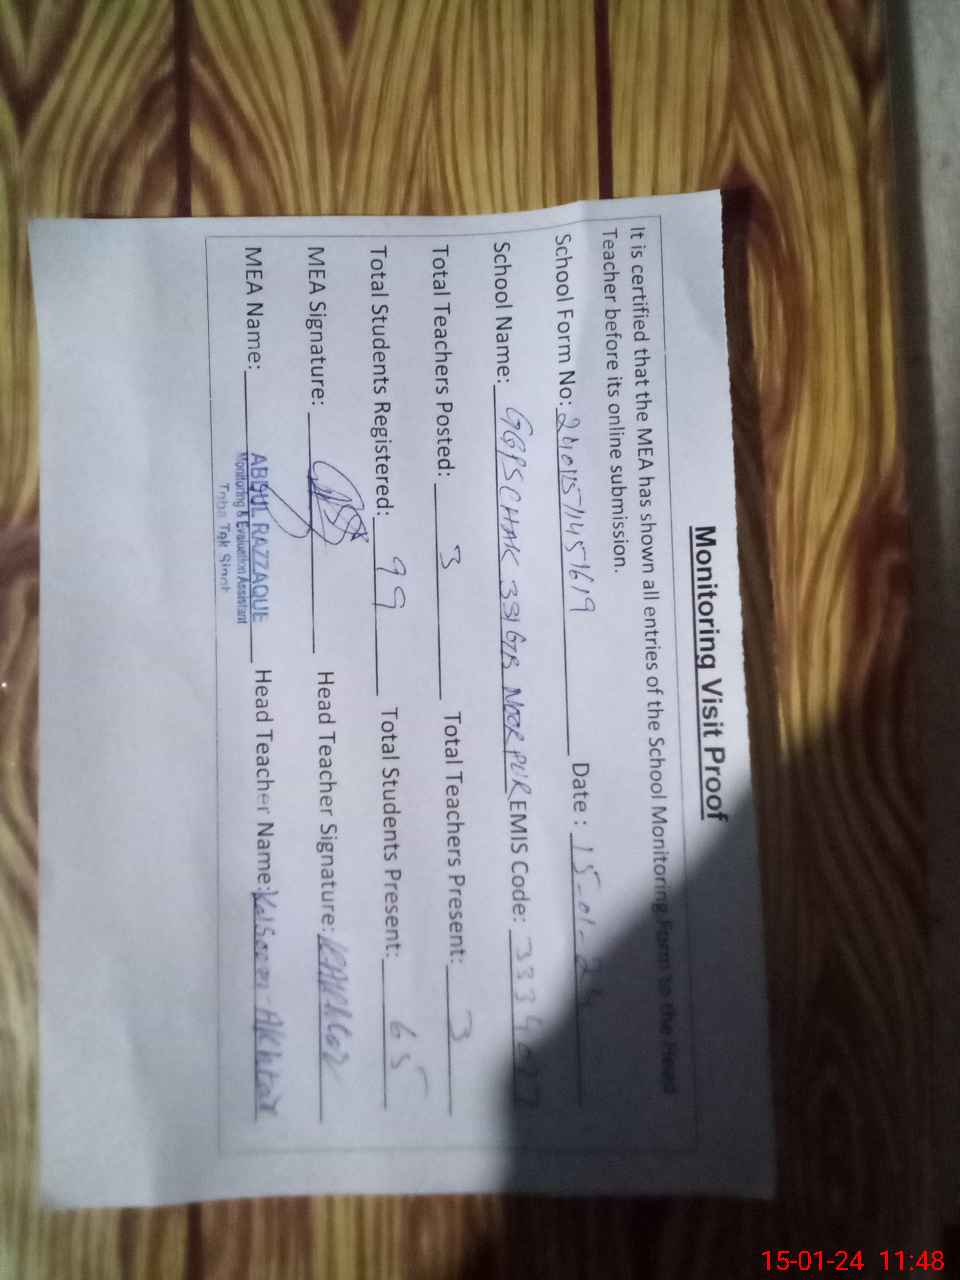 Monitoring Visit Proof
It is certified that the MEA has shown all entries of the School Monitoring Form to the Head
Teacher before its online submission.
School Form No: Date : 15-01-24
School Name: GGPS CHAK 331 GB NOOR PUR EMIS Code:
Total Teachers Posted: 3 Total Teachers Present: 3
Total Students Registered: 99 Total Students Present: 65
MEA Signature: Head Teacher Signature:
MEA Name: ABDUL RAZZAQUE Head Teacher Name: Kalsoom-Akhtar
Monitoring & Evaluation Assistant
Toba Tek Singh
15-01-24 11:48